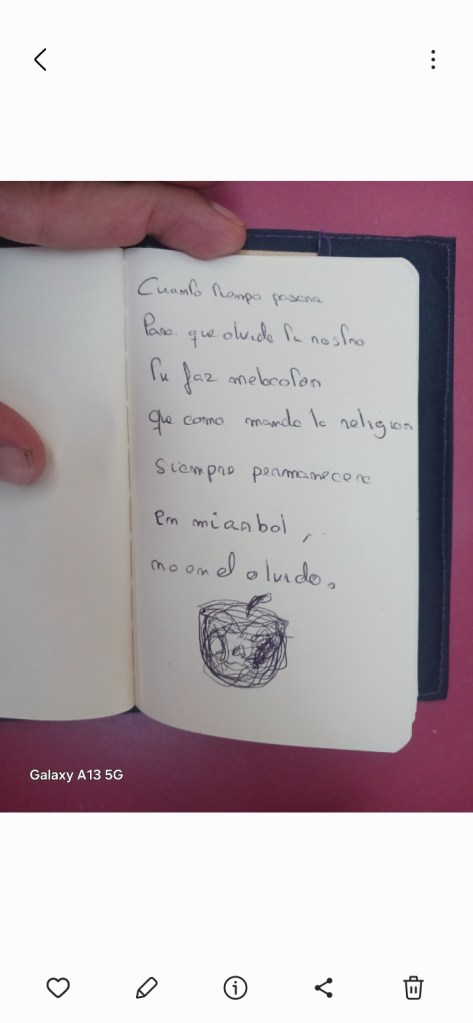 Cuanto tiempo pasara
Para que olvide tu rostro
Tu faz melocoton
que como manda la religion
siempre permanecera
en mi arbol,
no en el olvido.
Galaxy A13 5G